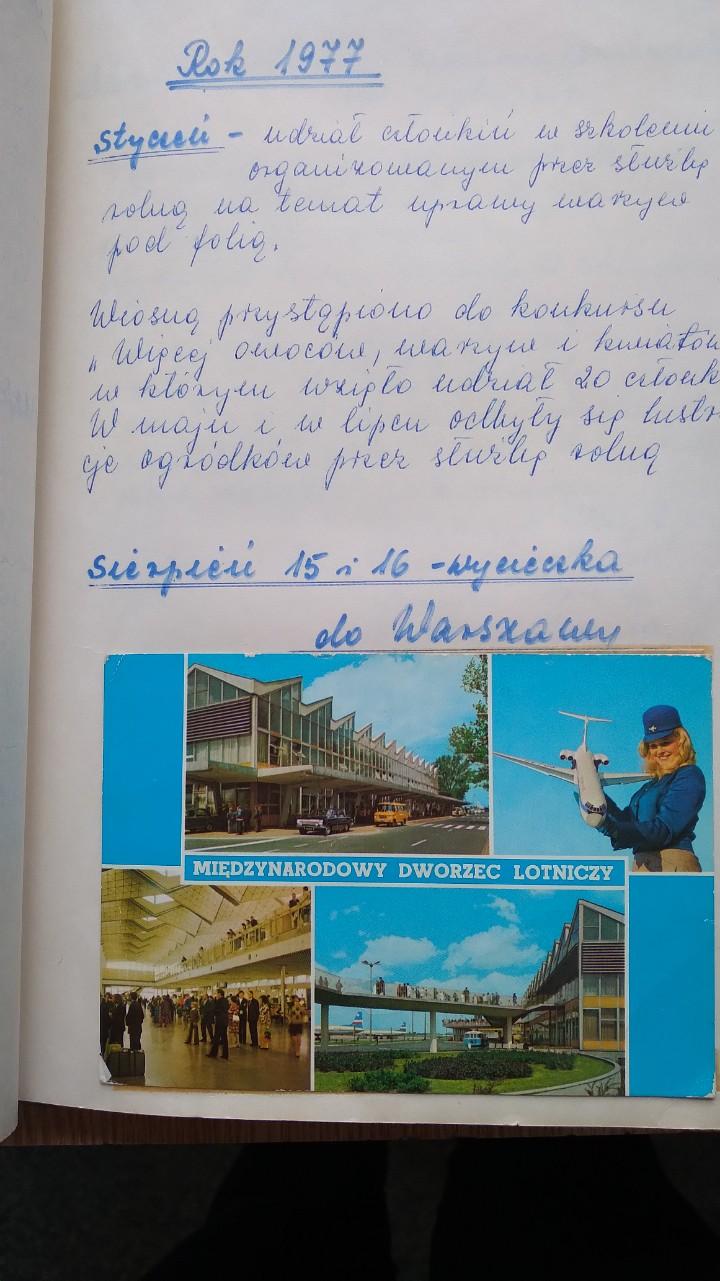 Rok 1977
Styczeń - udział członkiń w szkoleniu
organizowanym przez służbę
rolną na temat uprawy warzyw
pod folią.
Wiosną przystąpiono do konkursu
„Więcej owoców, warzyw i kwiatów
w którym wzięło udział 20 członk
W maju i w lipcu odbyły się lustr
cje ogródków przez służbę rolną
Sierpień 15 i 16 - wycieczka
do Warszawy
MIĘDZYNARODOWY DWORZEC LOTNICZY